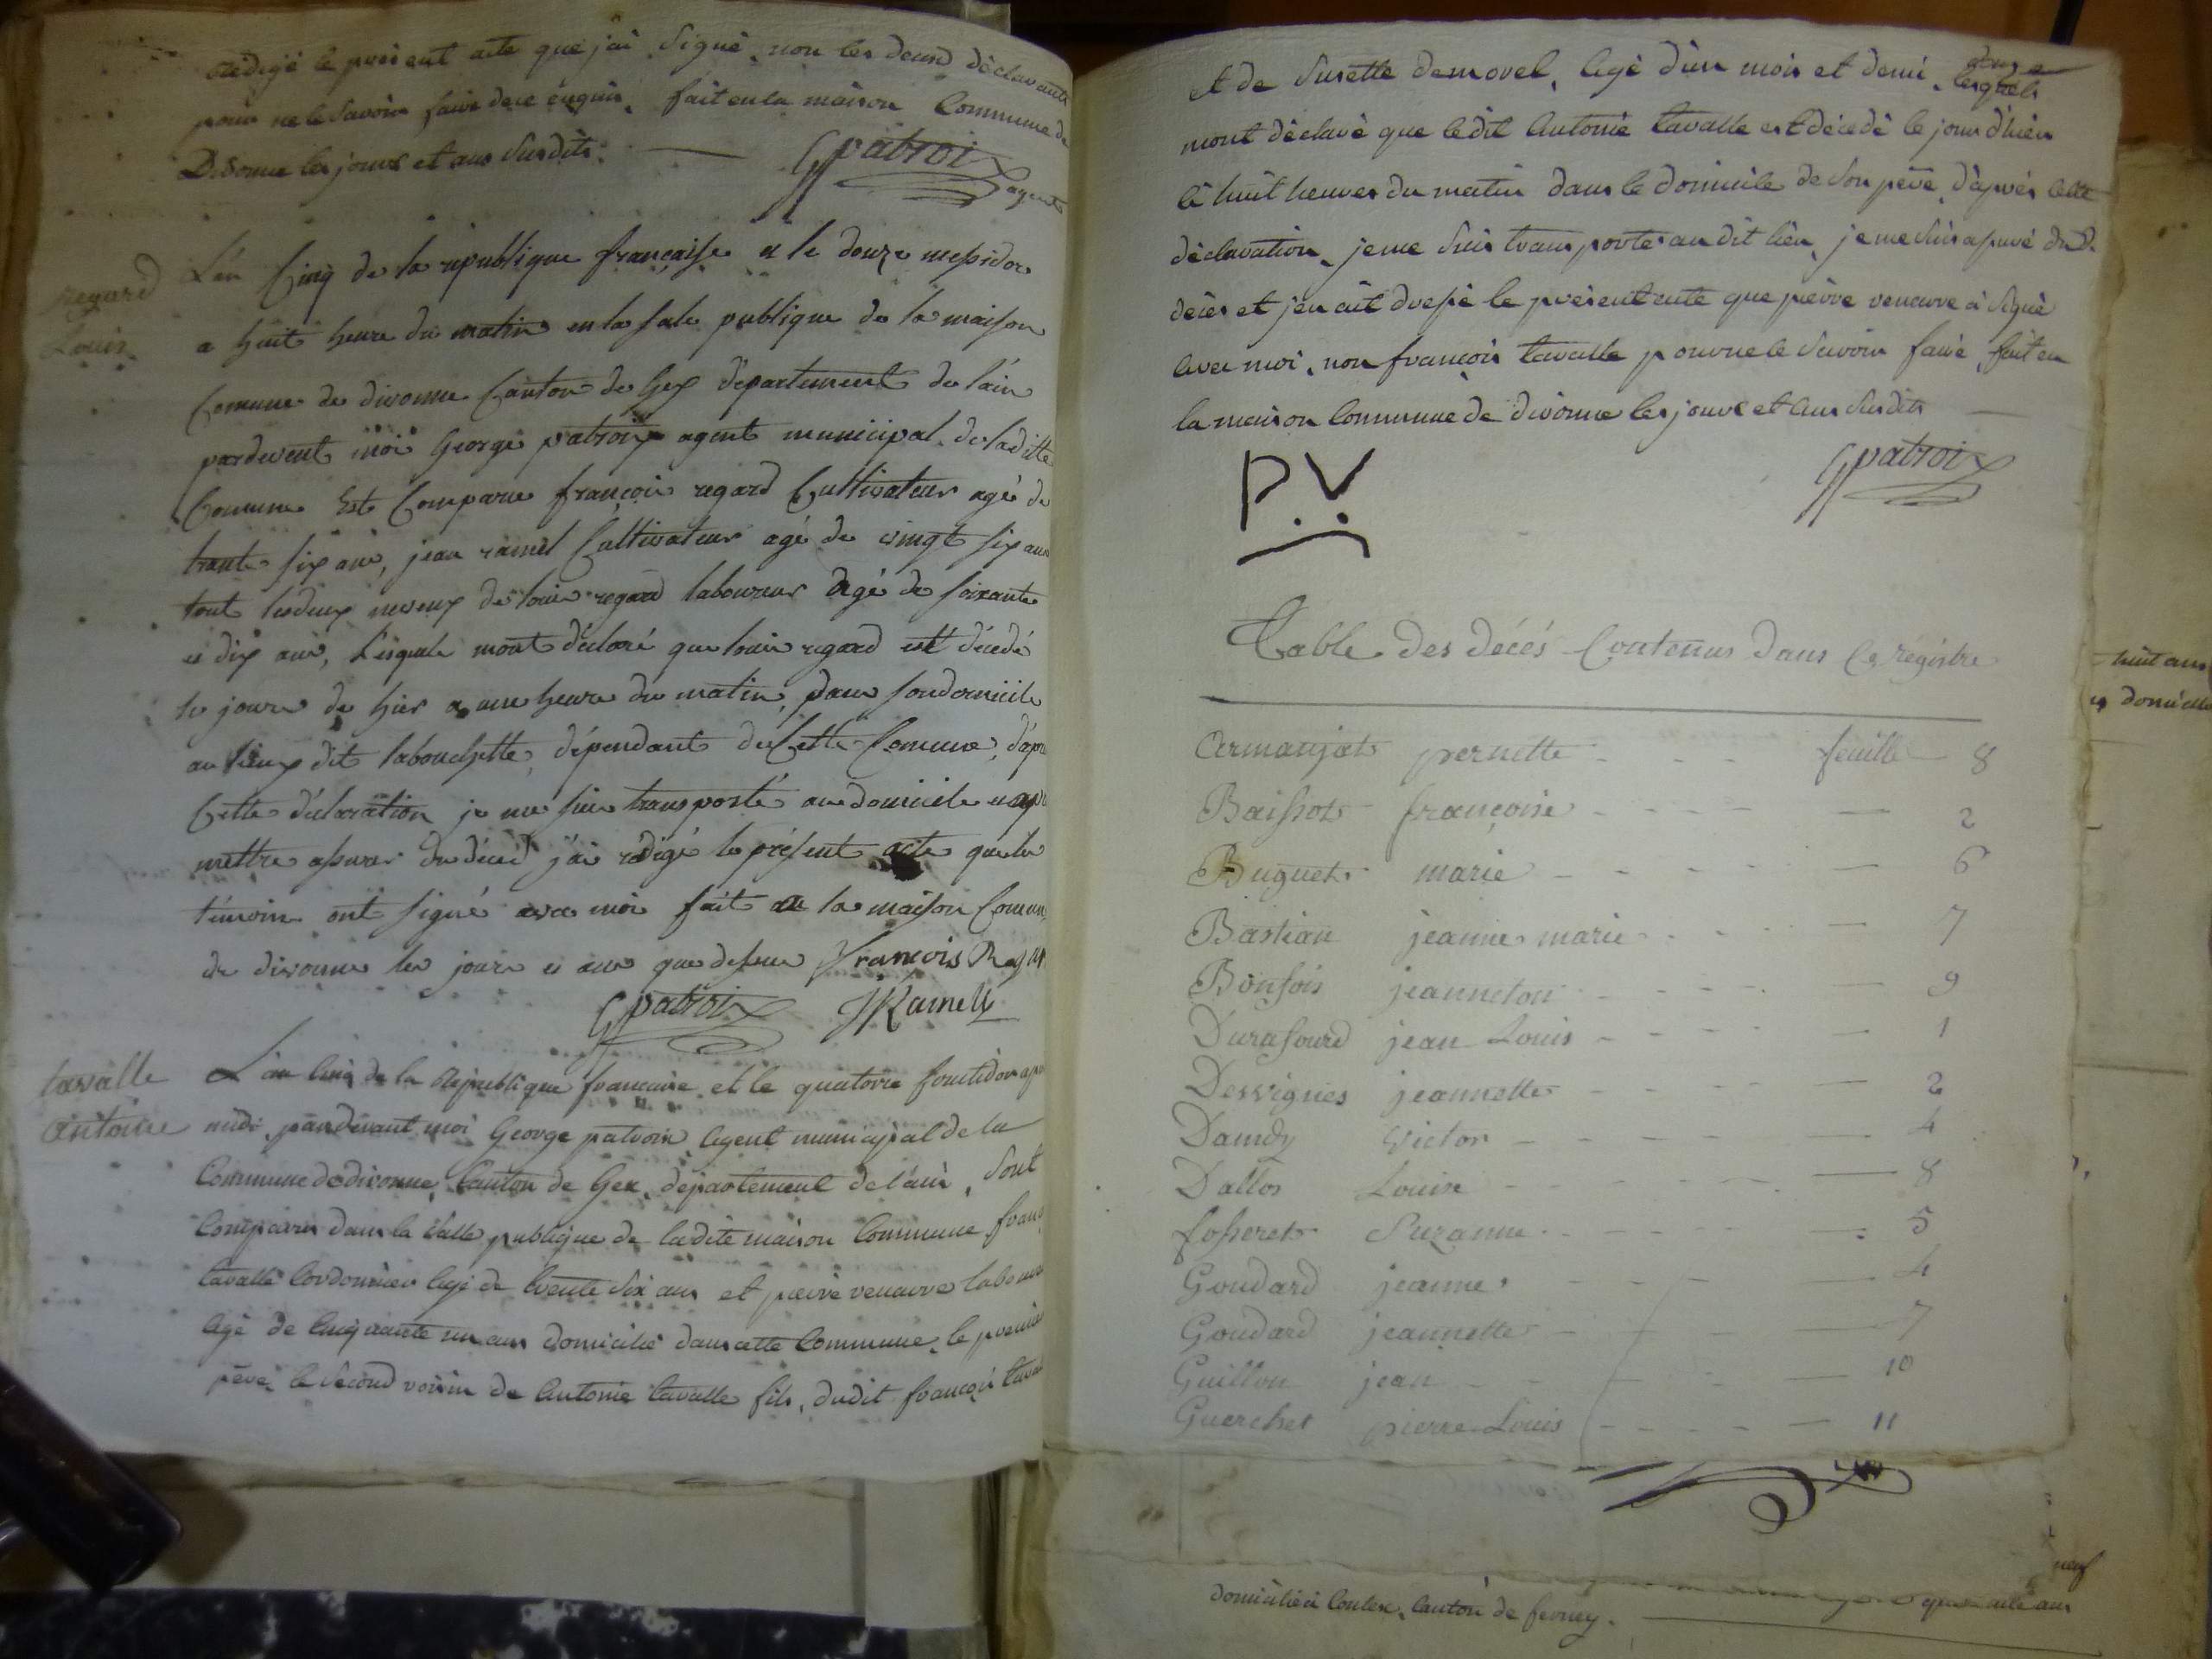 rédigé le présent acte que j'ai signé, non les deux déclarants
pour ne le savoir faire de ce enquis, fait en la maison Commune de
Divonne les jours et ans susdits.
GPatroix
agent
regard
Louis
L'an Cinq de la république française et le douze messidor
a huit heure du matin en la sale publique de la maison
Comune de divonne Canton de Gex département de l'ain
pardevent moi George patroix agent municipal de laditte
Comune Est Comparue françois regard Cultivateur agé de
trante six ans, jean ramel Cultivateur agé de vingt six ans
tout lesdeux neveux de louis regard laboureur agé de soixante
et dix ans, lesquels mont déclaré que louis regard est décedé
le jours de hier a une heure du matin, dans son domicile
au lieux dit labouchette, dépendant de Cette Comune, d'apre
Cette déclaration je me suis transporté au domicile et apr
mettre assurer du déced j'ai rédigé le présent acte que les
témoins ont signé avec moi fait a la maison Comun
de divonne les jours et ans que dessus François Regar
GPatroix JRamell
tavalle
antoine
L'an Cinq de la République francaise et le quatorze fructidor apr
midi, pardevant moi George patroix, agent municipal de la
Commune de divonne, Canton de Gex, département de l'ain, sont
Comparus dans la salle publique de ladite maison Commune franç
tavalle Cordonnier agé de trente six ans et pierre venarre labour
agé de Cinquante un ans domicilié dans cette Commune, le premier
père, le second voisin de Antonie tavalle fils, dudit françois tava
et de Susette demovel, agé d'un mois et demi, lesquels
mont déclaré que ledit Antonie tavalle est décedé le jour d'hier
à huit heures du matin dans le domicile de son père, d'après cette
déclaration, je me suis transporter au dit lieu, je me suis assuré du d.
décès et j'en ait dressé le présent acte que pierre venarre à signé
avec moi, non françois tavalle pour ne le savoir faire, fait en
la maison Commune de divonne les jours et ans susdits
P.V.
GPatroix
Table des décés Contenus dans ce régistre
Armanjat pernette - - - feuille 8
Baissot françoise - - - - — 2
Buguet marie - - - - — 6
Bastian jeanne marie - - - — 7
Bonsois jeanneton - - - - — 9
Durasourd jean Louis - - - - — 1
Desvignes jeannette - - - - — 2
Damdy Victor - - - - — 4
Dallos Louise - - - - — 8
fosseret Suzanne - - - - — 5
Goudard jeanne - - - — 4
Goudard jeannette - - - — 7
Guillon jean - - - - — 10
Guerchet pierre Louis - - - - — 11
huit ans
domicilié à Coulex, Canton de ferney.
neuf